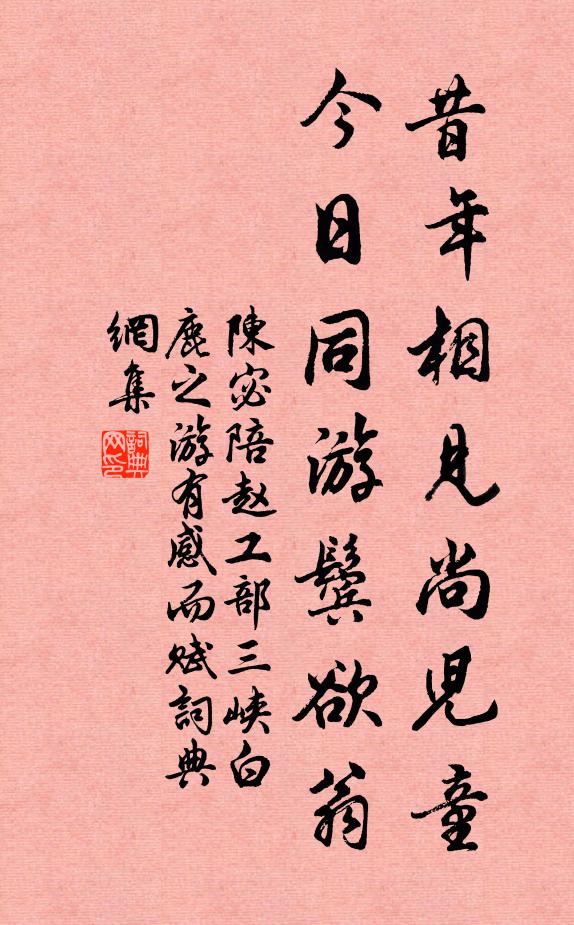 昔年相見尚児童
今日同游鬓欲翁
陳宓陪赵工部三峡白
鹿之游有感而赋詞典
網集
詞典
网印